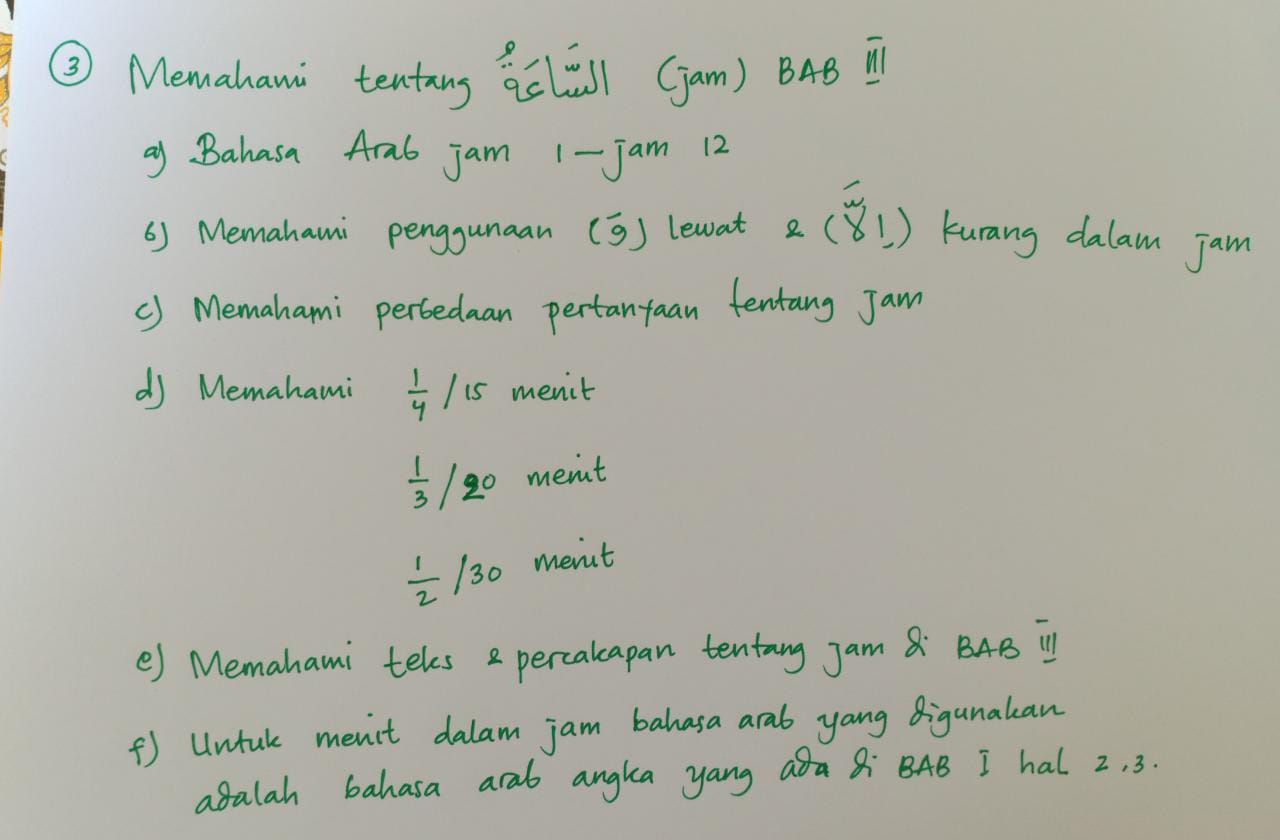 ③ Memahami tentang السَّاعَةُ (jam) BAB III
a) Bahasa Arab jam 1 – jam 12
b) Memahami penggunaan (وَ) lewat & (إِلَّا) kurang dalam jam
c) Memahami perbedaan pertanyaan tentang jam
d) Memahami 1/4 / 15 menit
1/3 / 20 menit
1/2 / 30 menit
e) Memahami teks & percakapan tentang jam di BAB III
f) Untuk menit dalam jam bahasa arab yang digunakan
adalah bahasa arab angka yang ada di BAB I hal 2,3.